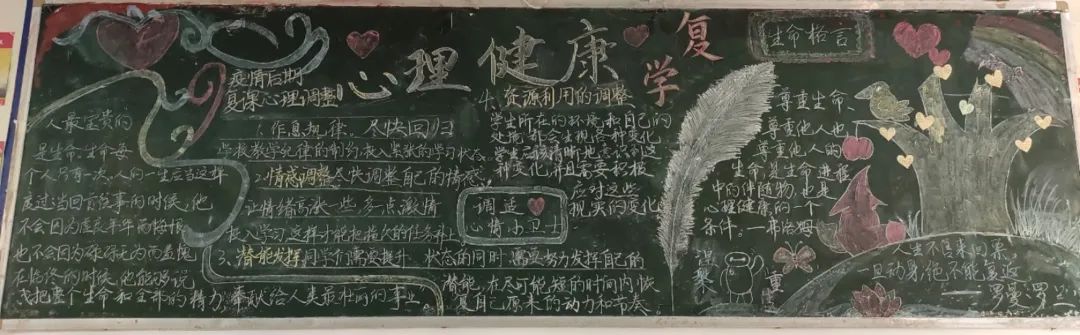 心理健康
复学
疫情后期
复课心理调整
人最宝贵的
是生命,生命每
个人只有一次,人的一生应当这样
度过:当回首往事的时候,他
不会因为虚度年华而悔恨
也不会因为碌碌无为而羞愧
在临终的时候,他能够说
我把整个生命和全部的精力,奉献给人类最壮丽的事业
1.作息规律。尽快回归
学校教学纪律的制约,投入紧张的学习状态。
2.情感调整 尽快调整自己的情感,
让情绪高涨一些,多点激情
投入学习,这样才能把指欠的任务补上
3、潜能发挥 同学们需要提升 状态的同时 需要努力发挥自己的
潜能,在尽可能短的时间内恢
复自己原来的动力和节奏。
4、资源利用的调整
学生所在的环境和自己的
处境,都会出现各种变化
学生应该清晰地意识到这
种变化,并且需要积极
应对这些
现实的变化
调适
心情小卫士
生命格言
尊重生命、
尊重他人也
尊重他人的
生命,是生命进程
中的伴随物,也是
心理健康的一个
条件。—弗洛姆
人生不售来回票,
一旦动身,绝不能复返
——罗曼·罗兰